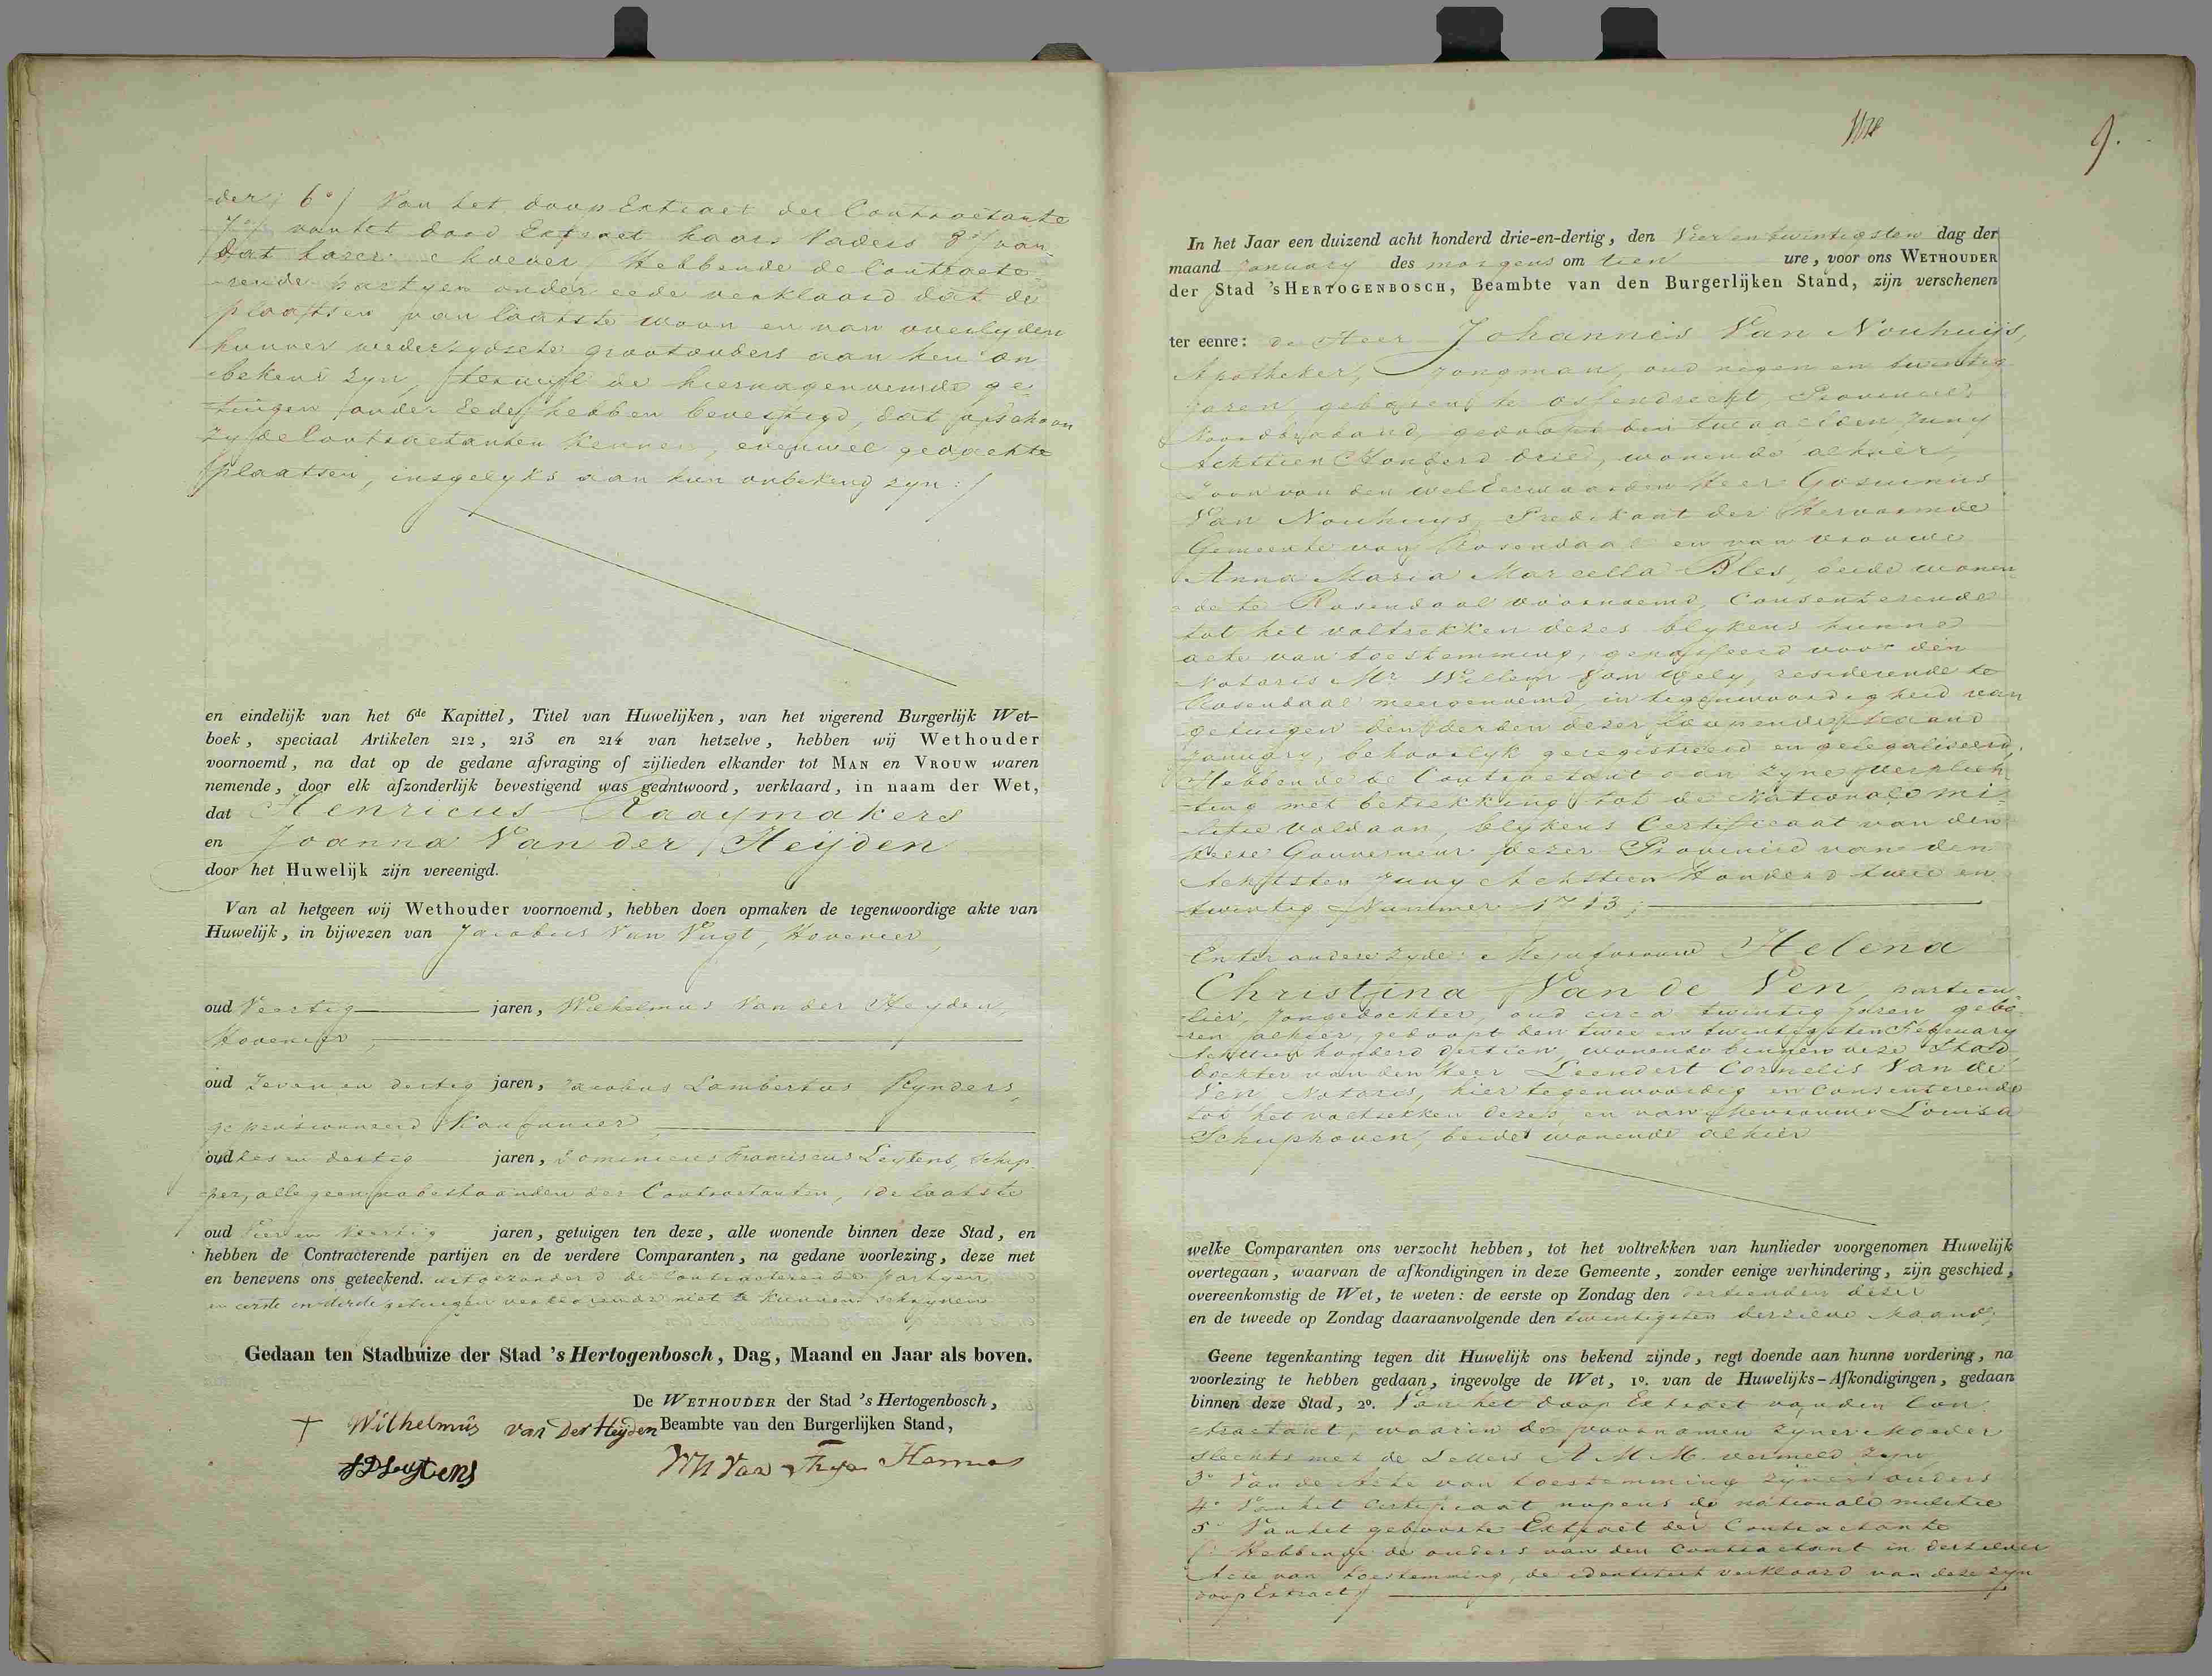 der; 6°/ Van het doop Extract der Contractante
7°/ van het dood Extract haars Vaders 8°/ van
dat harer Moeder, Hebbende de Contracte-
rende partyen onder eede verklaard dat de
plaatsen van laatste woon en van overlyden
hunner wederzydsche grootouders aan hen on
bekend zyn, terwyl de hiernagenoemde ge
tuigen onder Eede hebben bevestigd, dat ofschoon
zy de Contractanten kennen, evenwel gedachte
plaatsen, insgelyks aan hun onbekend zyn:/
en eindelijk van het 6de Kapittel, Titel van Huwelijken, van het vigerend Burgerlijk Wet-
boek, speciaal Artikelen 212, 213 en 214 van hetzelve, hebben wij Wethouder
voornoemd, na dat op de gedane afvraging of zijlieden elkander tot MAN en VROUW waren
nemende, door elk afzonderlijk bevestigend was geantwoord, verklaard, in naam der Wet,
dat Henricus Raaymakers
en Joanna Van der Heijden
door het Huwelijk zijn vereenigd.
Van al hetgeen wij Wethouder voornoemd, hebben doen opmaken de tegenwoordige akte van
Huwelijk, in bijwezen van Jacobus Van Vugt, Hovenier,
oud Veertig jaren, Wilhelmus Van der Heyden,
Hovenier,
oud Zeven en dertig jaren, Jacobus Lambertus Rynders,
gepensionneerd Kanonnier,
oud zes en dertig jaren, Dominicus Franciscus Leytens, Schip-
per, alle geen nabestaanden der Contractanten, de laatste
oud Vier en Veertig jaren, getuigen ten deze, alle wonende binnen deze Stad, en
hebben de Contracterende partijen en de verdere Comparanten, na gedane voorlezing, deze met
en benevens ons geteekend. uitgezonderd de Contracterende partyen
en eerste en derde getuigen verklarende niet te kunnen schryven
Gedaan ten Stadhuize der Stad 's Hertogenbosch, Dag, Maand en Jaar als boven.
De WETHOUDER der Stad 's Hertogenbosch,
Beambte van den Burgerlijken Stand,
Wilhelmus van Der Heijden
9.
In het Jaar een duizend acht honderd drie-en-dertig, den Vier en twintigsten dag der
maand January des morgens om tien ure, voor ons WETHOUDER
der Stad 'SHERTOGENBOSCH, Beambte van den Burgerlijken Stand, zijn verschenen
ter eenre: de Heer Johannes Van Nouhuijs,
Apotheker, Jongman, oud negen en twintig
Jaren, geboren te Ossendrecht, Provincie
Noordbraband, gedoopt den twaalfden Juny
Achttien Honderd drie, wonende alhier,
Zoon van den welEerwaarden Heer Gosuinus
Van Nouhuys, Predikant der Hervormde
Gemeente van Rosendaal en van Vrouwe
Anna Maria Marcella Bles, beide wonen-
de te Rosendaal voornoemd, Consenterende
tot het voltrekken dezes blykens hunne
acte van toestemming, gepasseerd voor den
Notaris Mr. Willem Van Wely, residerende te
Rosendaal meergenoemd, in tegenwoordigheid van
getuigen den derden dezer loopende maand
January, behoorlyk geregistreerd en gelegaliseerd,
Hebbende de Contractant aan zyne verplich-
ting met betrekking tot de Nationale Mi-
litie voldaan, blykens Certificaat van den
Heere Gouverneur dezer Provincie van den
Achtsten Juny Achttien Honderd twee en
twintig Nummer 1713;
En ter andere zyde: Mejufvrouw Helena
Christina Van de Ven, particu
lier, Jongedochter, oud circa twintig Jaren gebo-
ren alhier, gedoopt den twee en twintigsten February
Achttien honderd dertien, wonende binnen deze Stad
dochter van den Heer Leendert Cornelis Van de
Ven Notaris, hier tegenwoordig en Consenterende
tot het voltrekken dezes, en van Mevrouwe Louisa
Schuphoven, beide wonende alhier
welke Comparanten ons verzocht hebben, tot het voltrekken van hunlieder voorgenomen Huwelijk
overtegaan, waarvan de afkondigingen in deze Gemeente, zonder eenige verhindering, zijn geschied,
overeenkomstig de Wet, te weten: de eerste op Zondag den dertienden dezer
en de tweede op Zondag daaraanvolgende den twintigsten derzelve Maand;
Geene tegenkanting tegen dit Huwelijk ons bekend zijnde, regt doende aan hunne vordering, na
voorlezing te hebben gedaan, ingevolge de Wet, 1o. van de Huwelijks-Afkondigingen, gedaan
binnen deze Stad, 2o. Van het doop Extract van den Con-
tractant, waarin de voornamen zyner Moeder
slechts met de Letters A M M. vermeld zyn
3° Van de Acte van toestemming zyner ouders
4° Van het Certificaat nopens de nationale militie
5° Van het geboorte Extract der Contractante
Hebbende de ouders van den Contractant in derzelver
Acte van toestemming, de identiteit verklaard van deze zyn
doop Extract/